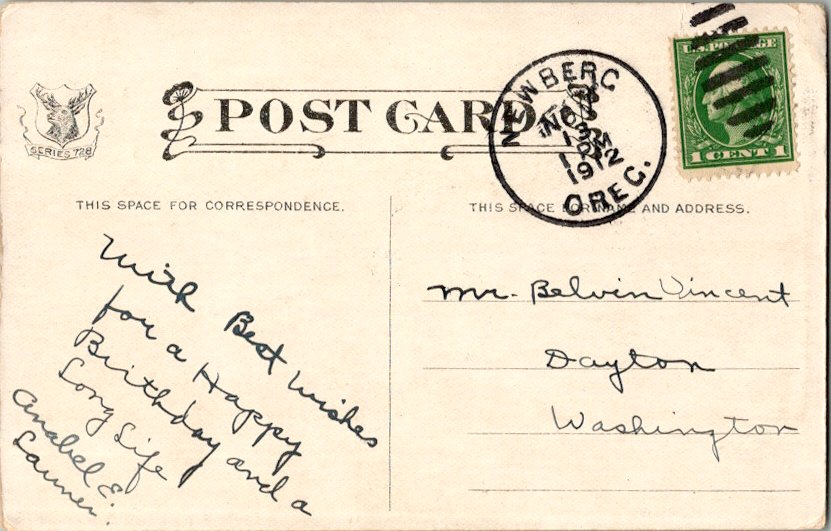 POST CARD
SERIES 728
NEWBERG
NOV
1912
OREG.
U.S. POSTAGE
1 CENT 1
THIS SPACE FOR CORRESPONDENCE.
THIS SPACE FOR NAME AND ADDRESS.
With Best Wishes
for a Happy
Birthday and a
Long Life
Anabel E.
Mr. Belvin Vincent
Dayton
Washington